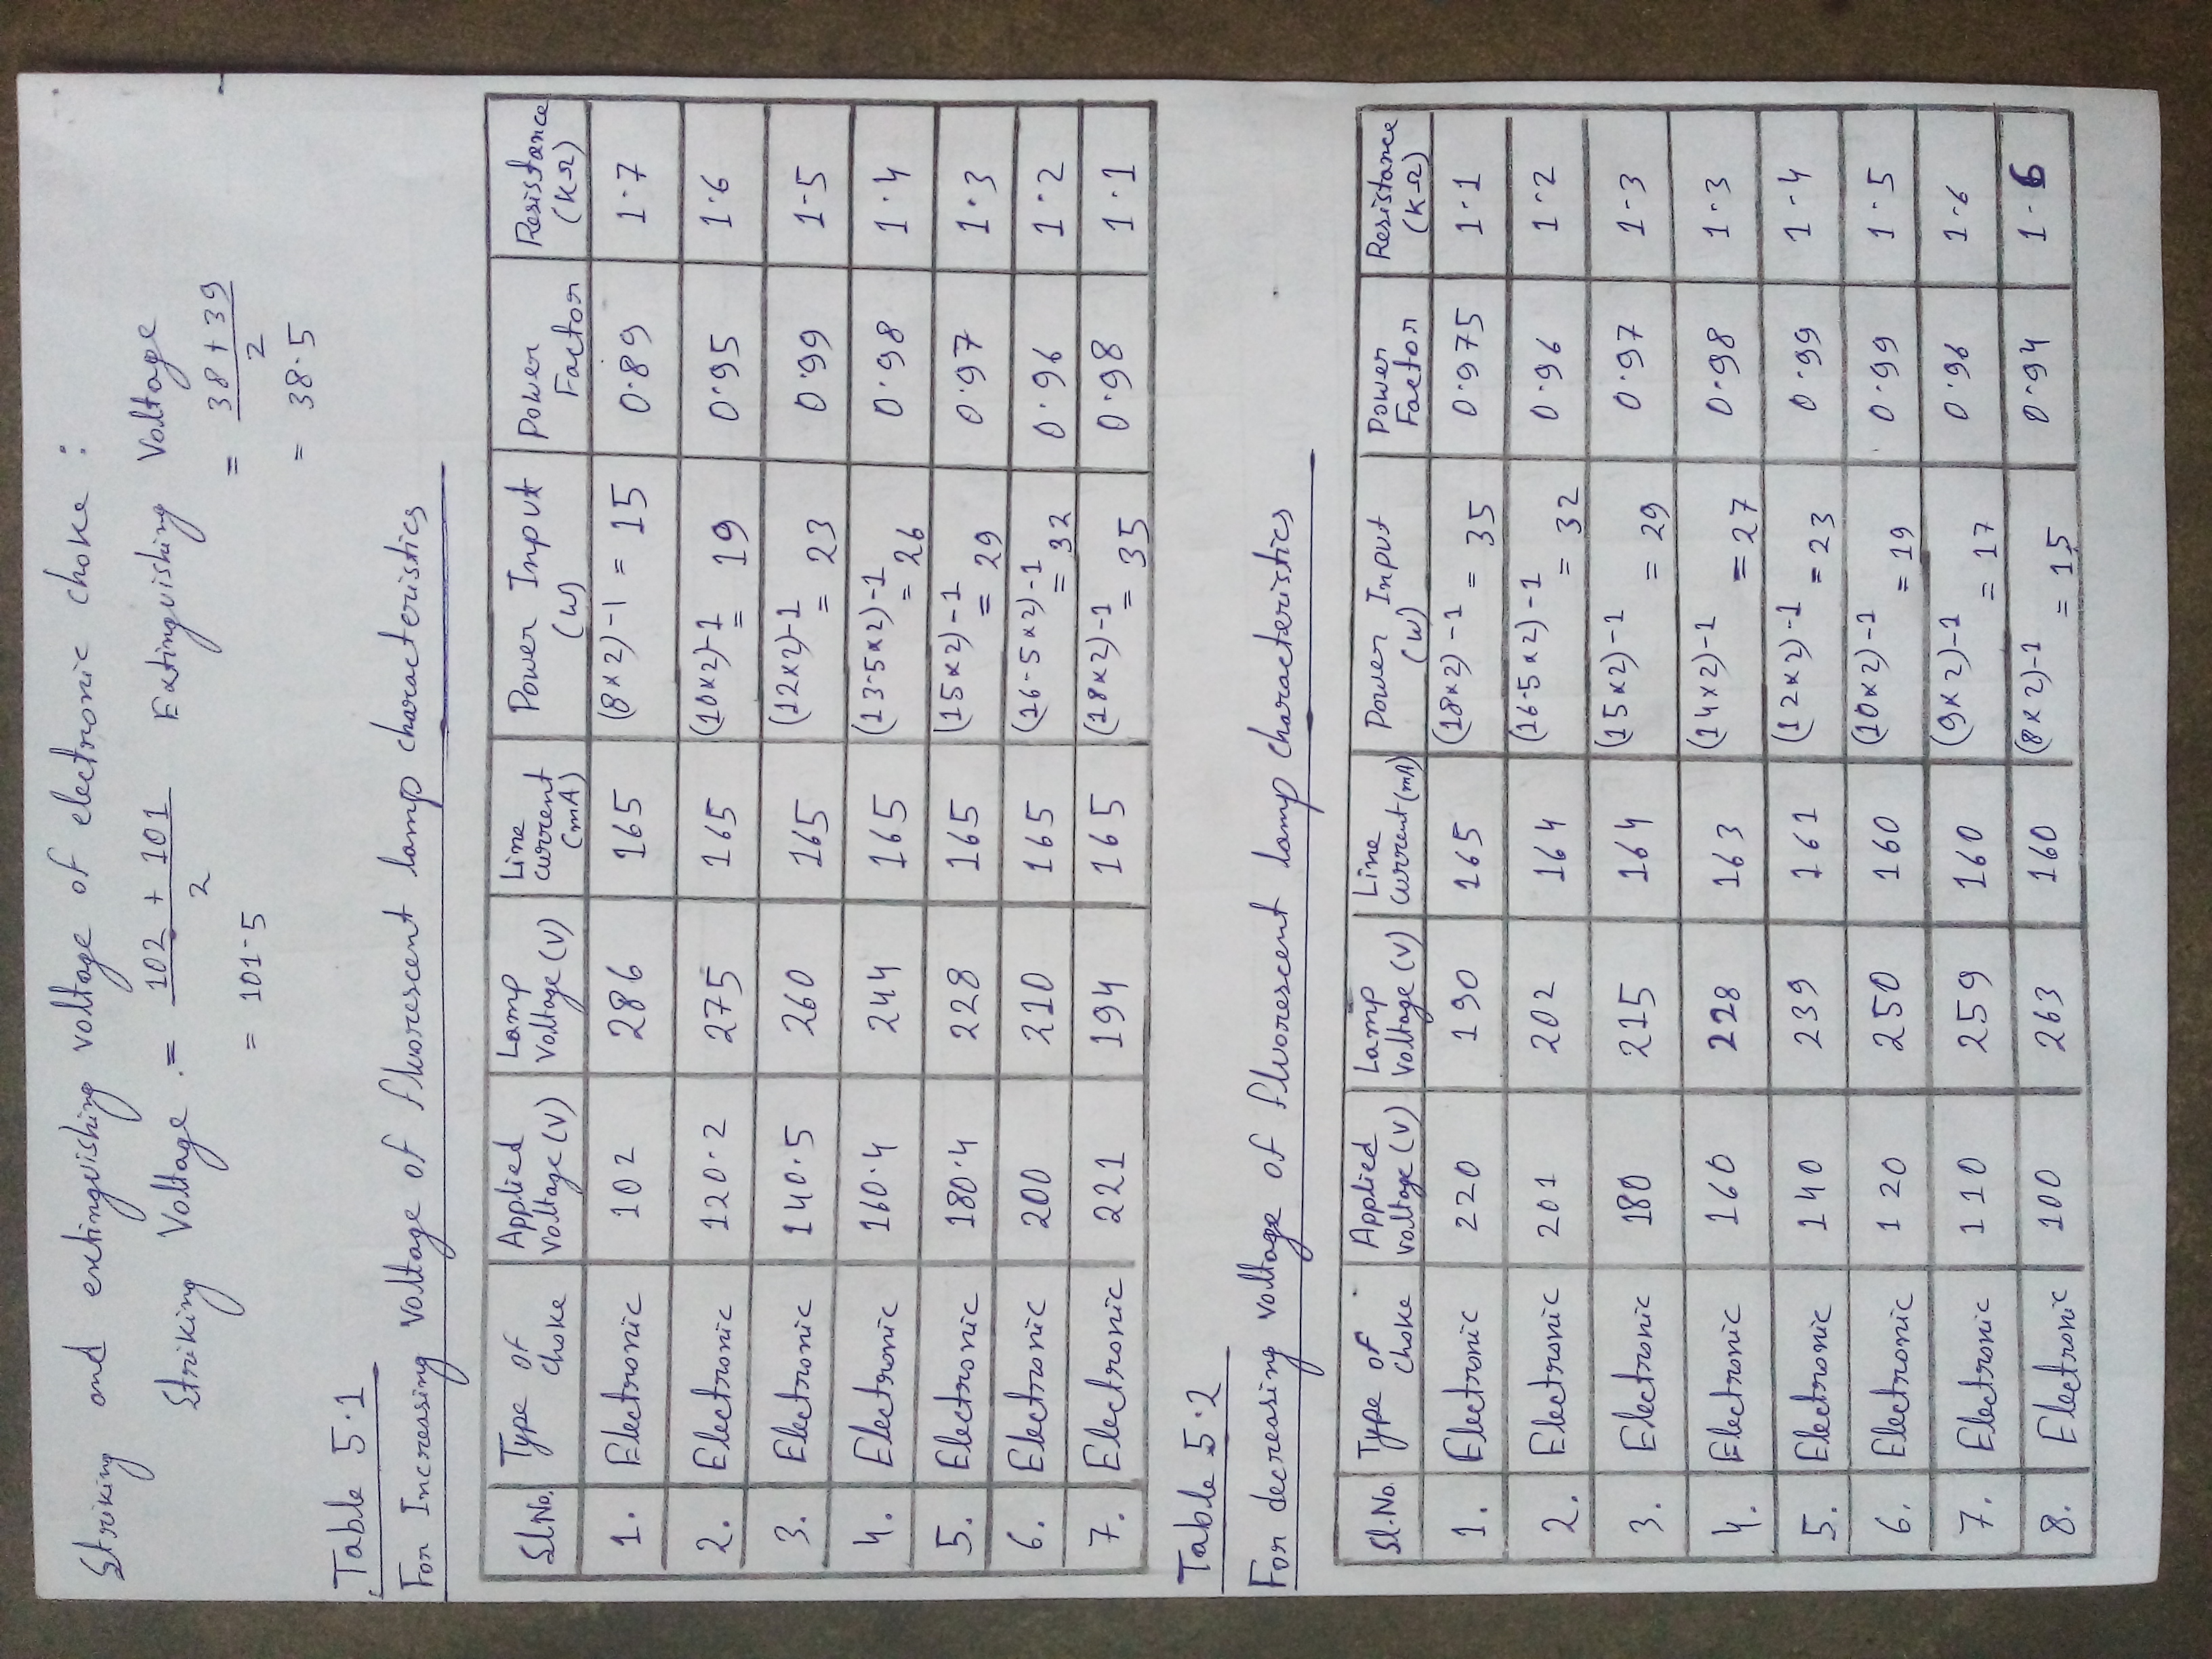 Striking and extinguishing voltage of electronic choke :
Striking Voltage = 102 + 101 / 2 Extinguishing Voltage
= 101.5 = 38 + 39 / 2
= 38.5
Table 5.1
For Increasing voltage of fluorescent lamp characteristics
Sl.No. Type of choke Applied voltage (V) Lamp voltage (V) Line current (mA) Power Input (W) Power Factor Resistance (KΩ)
1. Electronic 102 286 165 (8×2)-1 = 15 0.89 1.7
2. Electronic 120.2 275 165 (10×2)-1 = 19 0.95 1.6
3. Electronic 140.5 260 165 (12×2)-1 = 23 0.99 1.5
4. Electronic 160.4 244 165 (13.5×2)-1 = 26 0.98 1.4
5. Electronic 180.4 228 165 (15×2)-1 = 29 0.97 1.3
6. Electronic 200 210 165 (16.5×2)-1 = 32 0.96 1.2
7. Electronic 221 194 165 (18×2)-1 = 35 0.98 1.1
Table 5.2
For decreasing voltage of fluorescent lamp characteristics
Sl.No. Type of choke Applied voltage (V) Lamp voltage (V) Line current (mA) Power Input (W) Power Factor Resistance (KΩ)
1. Electronic 220 190 165 (18×2)-1 = 35 0.975 1.1
2. Electronic 201 202 164 (16.5×2)-1 = 32 0.96 1.2
3. Electronic 180 215 164 (15×2)-1 = 29 0.97 1.3
4. Electronic 160 228 163 (14×2)-1 = 27 0.98 1.3
5. Electronic 140 239 161 (12×2)-1 = 23 0.99 1.4
6. Electronic 120 250 160 (10×2)-1 = 19 0.99 1.5
7. Electronic 110 259 160 (9×2)-1 = 17 0.96 1.6
8. Electronic 100 263 160 (8×2)-1 = 15 0.94 1.6